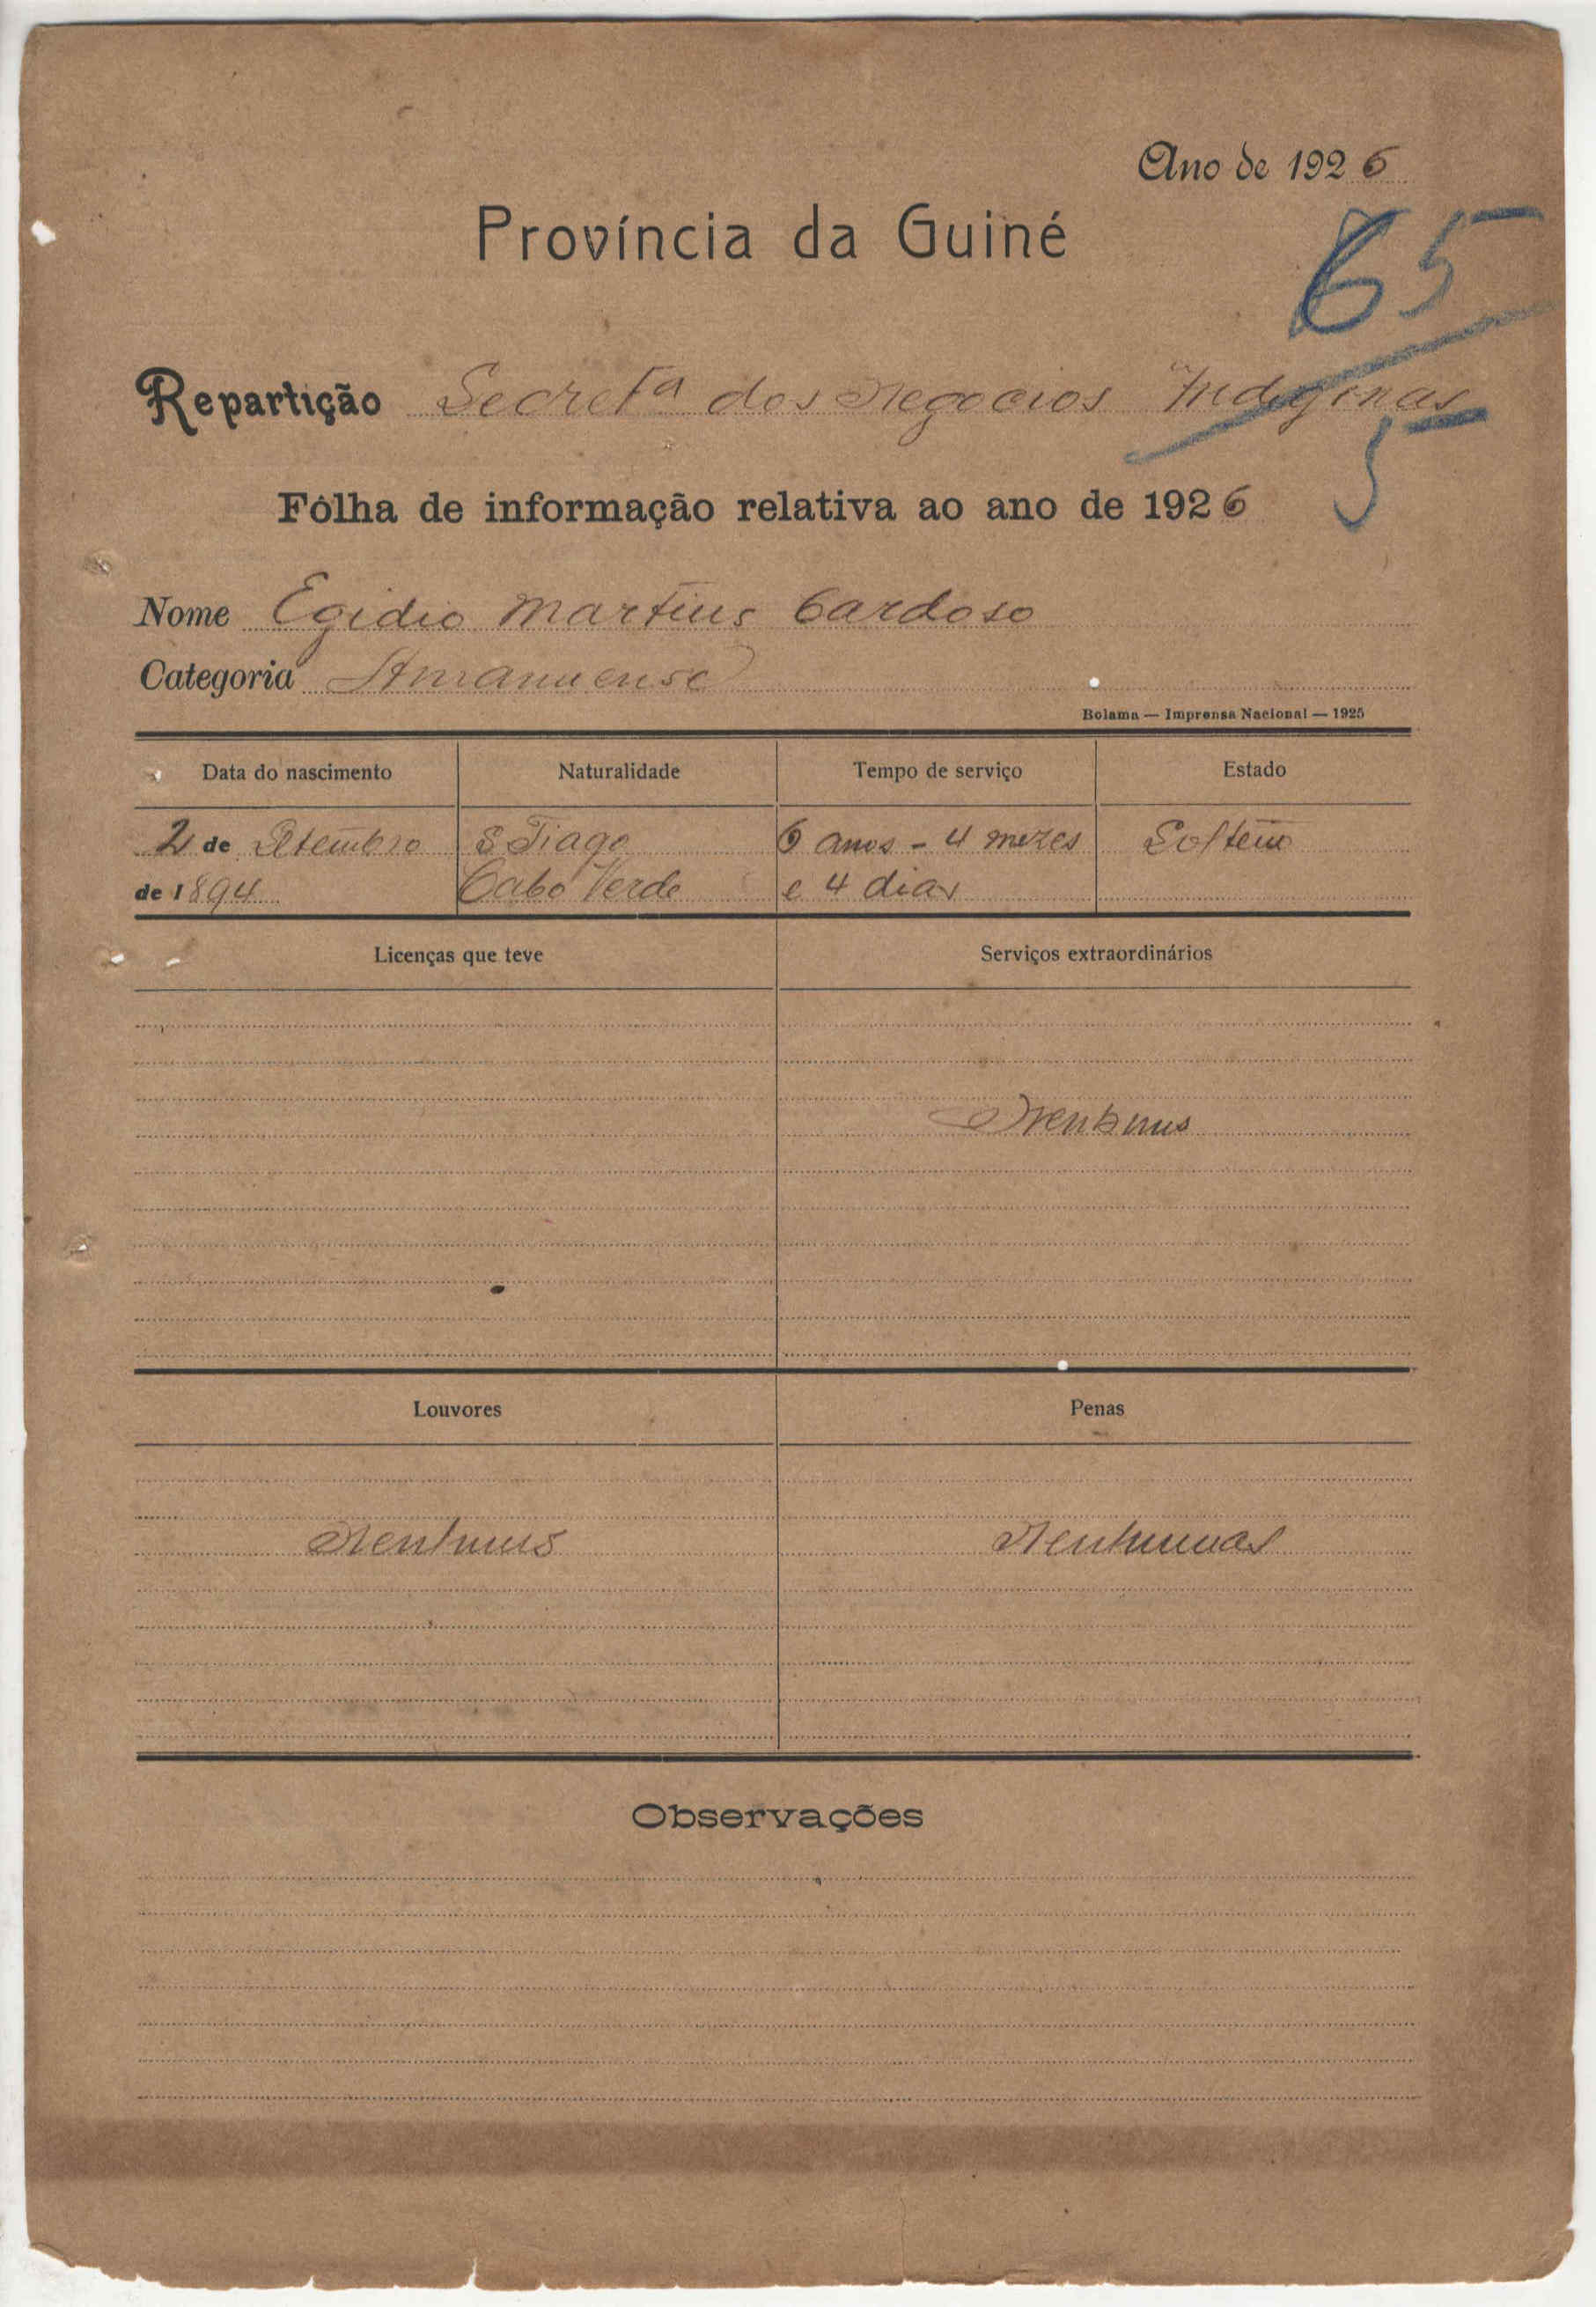 Ano de 1926
Província da Guiné
65
Repartição Secretª dos Negocios Indigenas
5
Fôlha de informação relativa ao ano de 1926
Nome Egidio Martins Cardoso
Categoria Amanuense
Bolama — Imprensa Nacional — 1925
Data do nascimento Naturalidade Tempo de serviço Estado
2 de Setembro S Tiago 6 anos - 4 mezes Solteiro
de 1894 Cabo Verde e 4 dias
Licenças que teve Serviços extraordinários
Nenhuns
Louvores Penas
Nenhuns Nenhumas
Observações